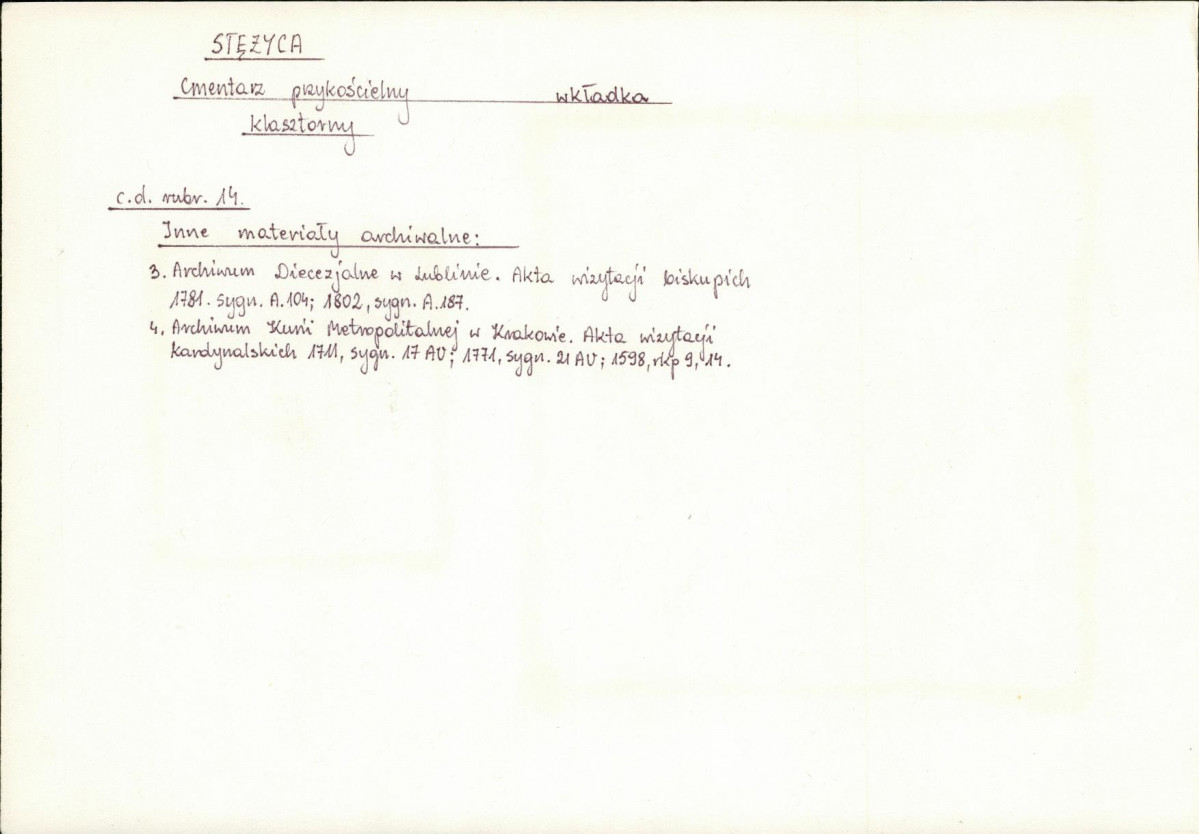 STĘŻYCA
Cmentarz przykościelny wkładka
klasztorny
c.d. rubr. 14.
Inne materiały archiwalne:
3. Archiwum Diecezjalne w Lublinie. Akta wizytacji biskupich
1781. sygn. A.104; 1802, sygn. A.187.
4. Archiwum Kurii Metropolitalnej w Krakowie. Akta wizytacji
kardynalskich 1711, sygn. 17 AV; 1771, sygn. 21 AV; 1598, rkp 9, 14.